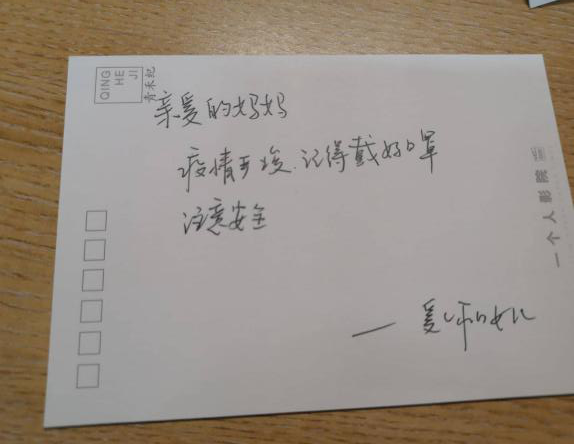 QING
HE
JI
青禾纪
亲爱的妈妈
疫情严峻.记得戴好口罩
注意安全
一个人影院
—爱你的女儿